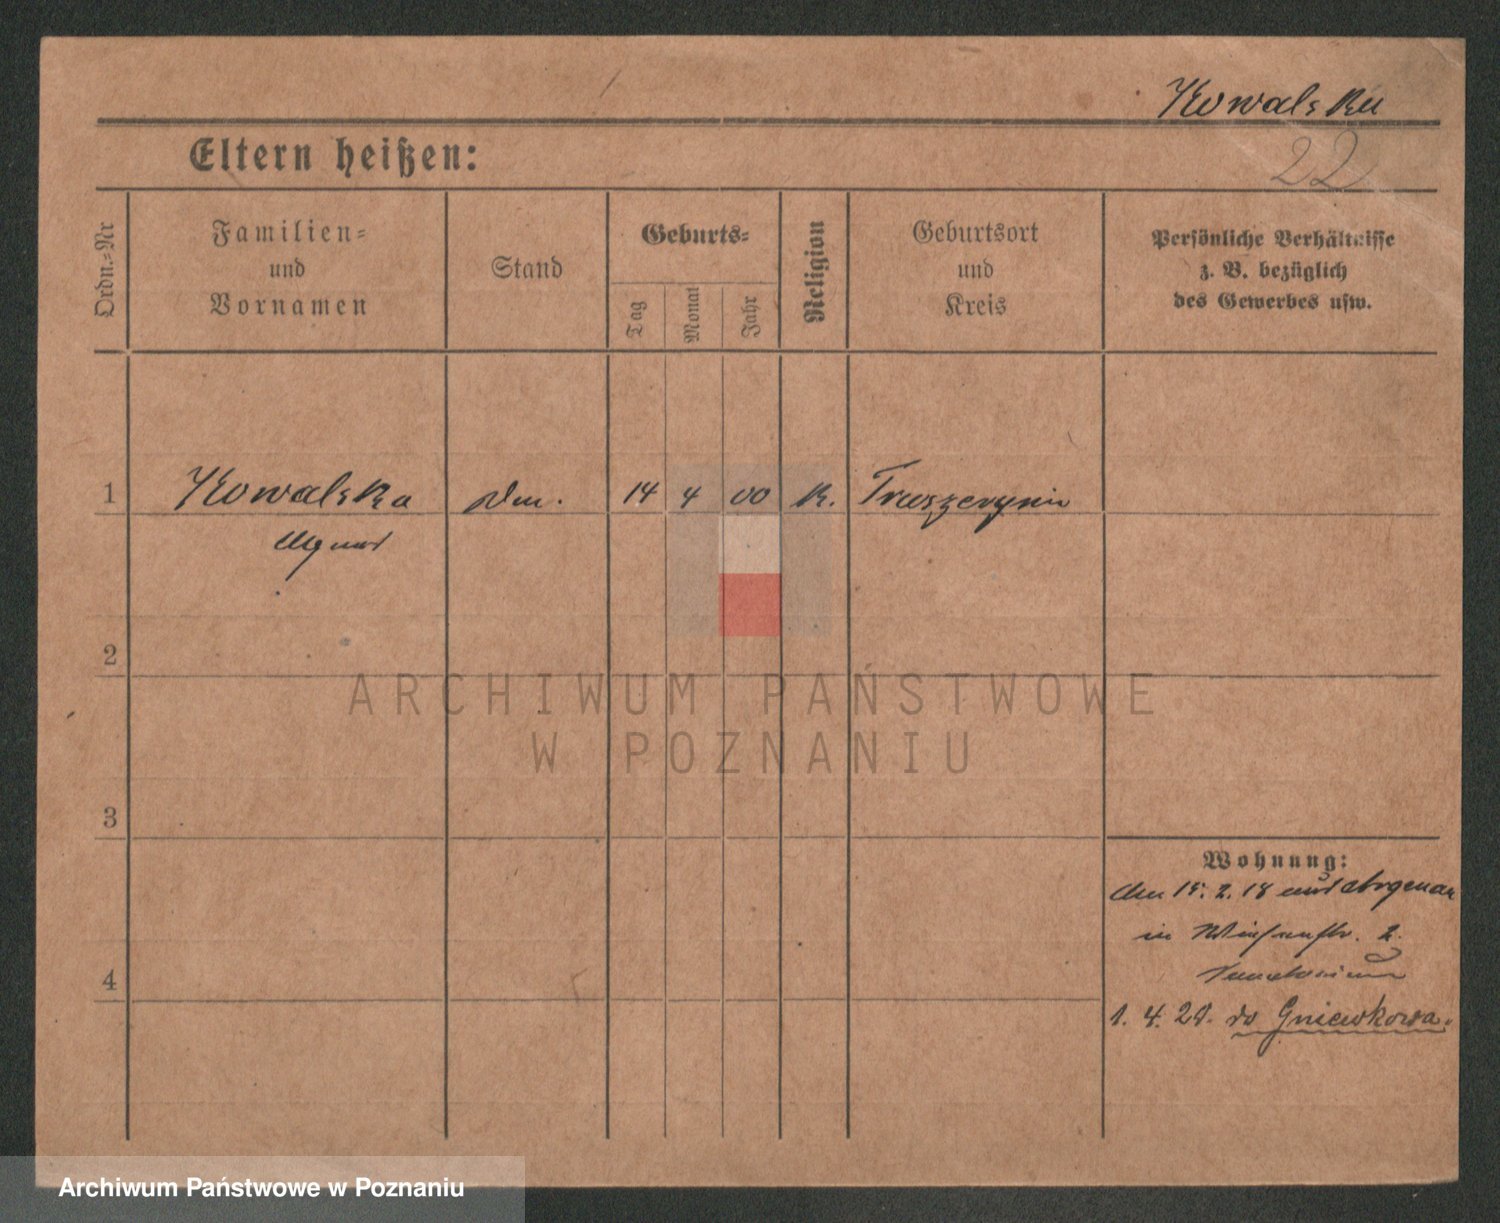 Kowalska
22
Eltern heißen:
Ordn.-Nr
Familien-
und
Vornamen
Stand
Geburts-
Tag
Monat
Jahr
Religion
Geburtsort
und
Kreis
Persönliche Verhältnisse
z. B. bezüglich
des Gewerbes usw.
1 Kowalska 14 4 00 K.
2
ARCHIWUM PAŃSTWOWE
W POZNANIU
3
Wohnung:
2. 18 aus Argenau
in 2.
4
1. 4. 20. do Gniewkowa.
Archiwum Państwowe w Poznaniu